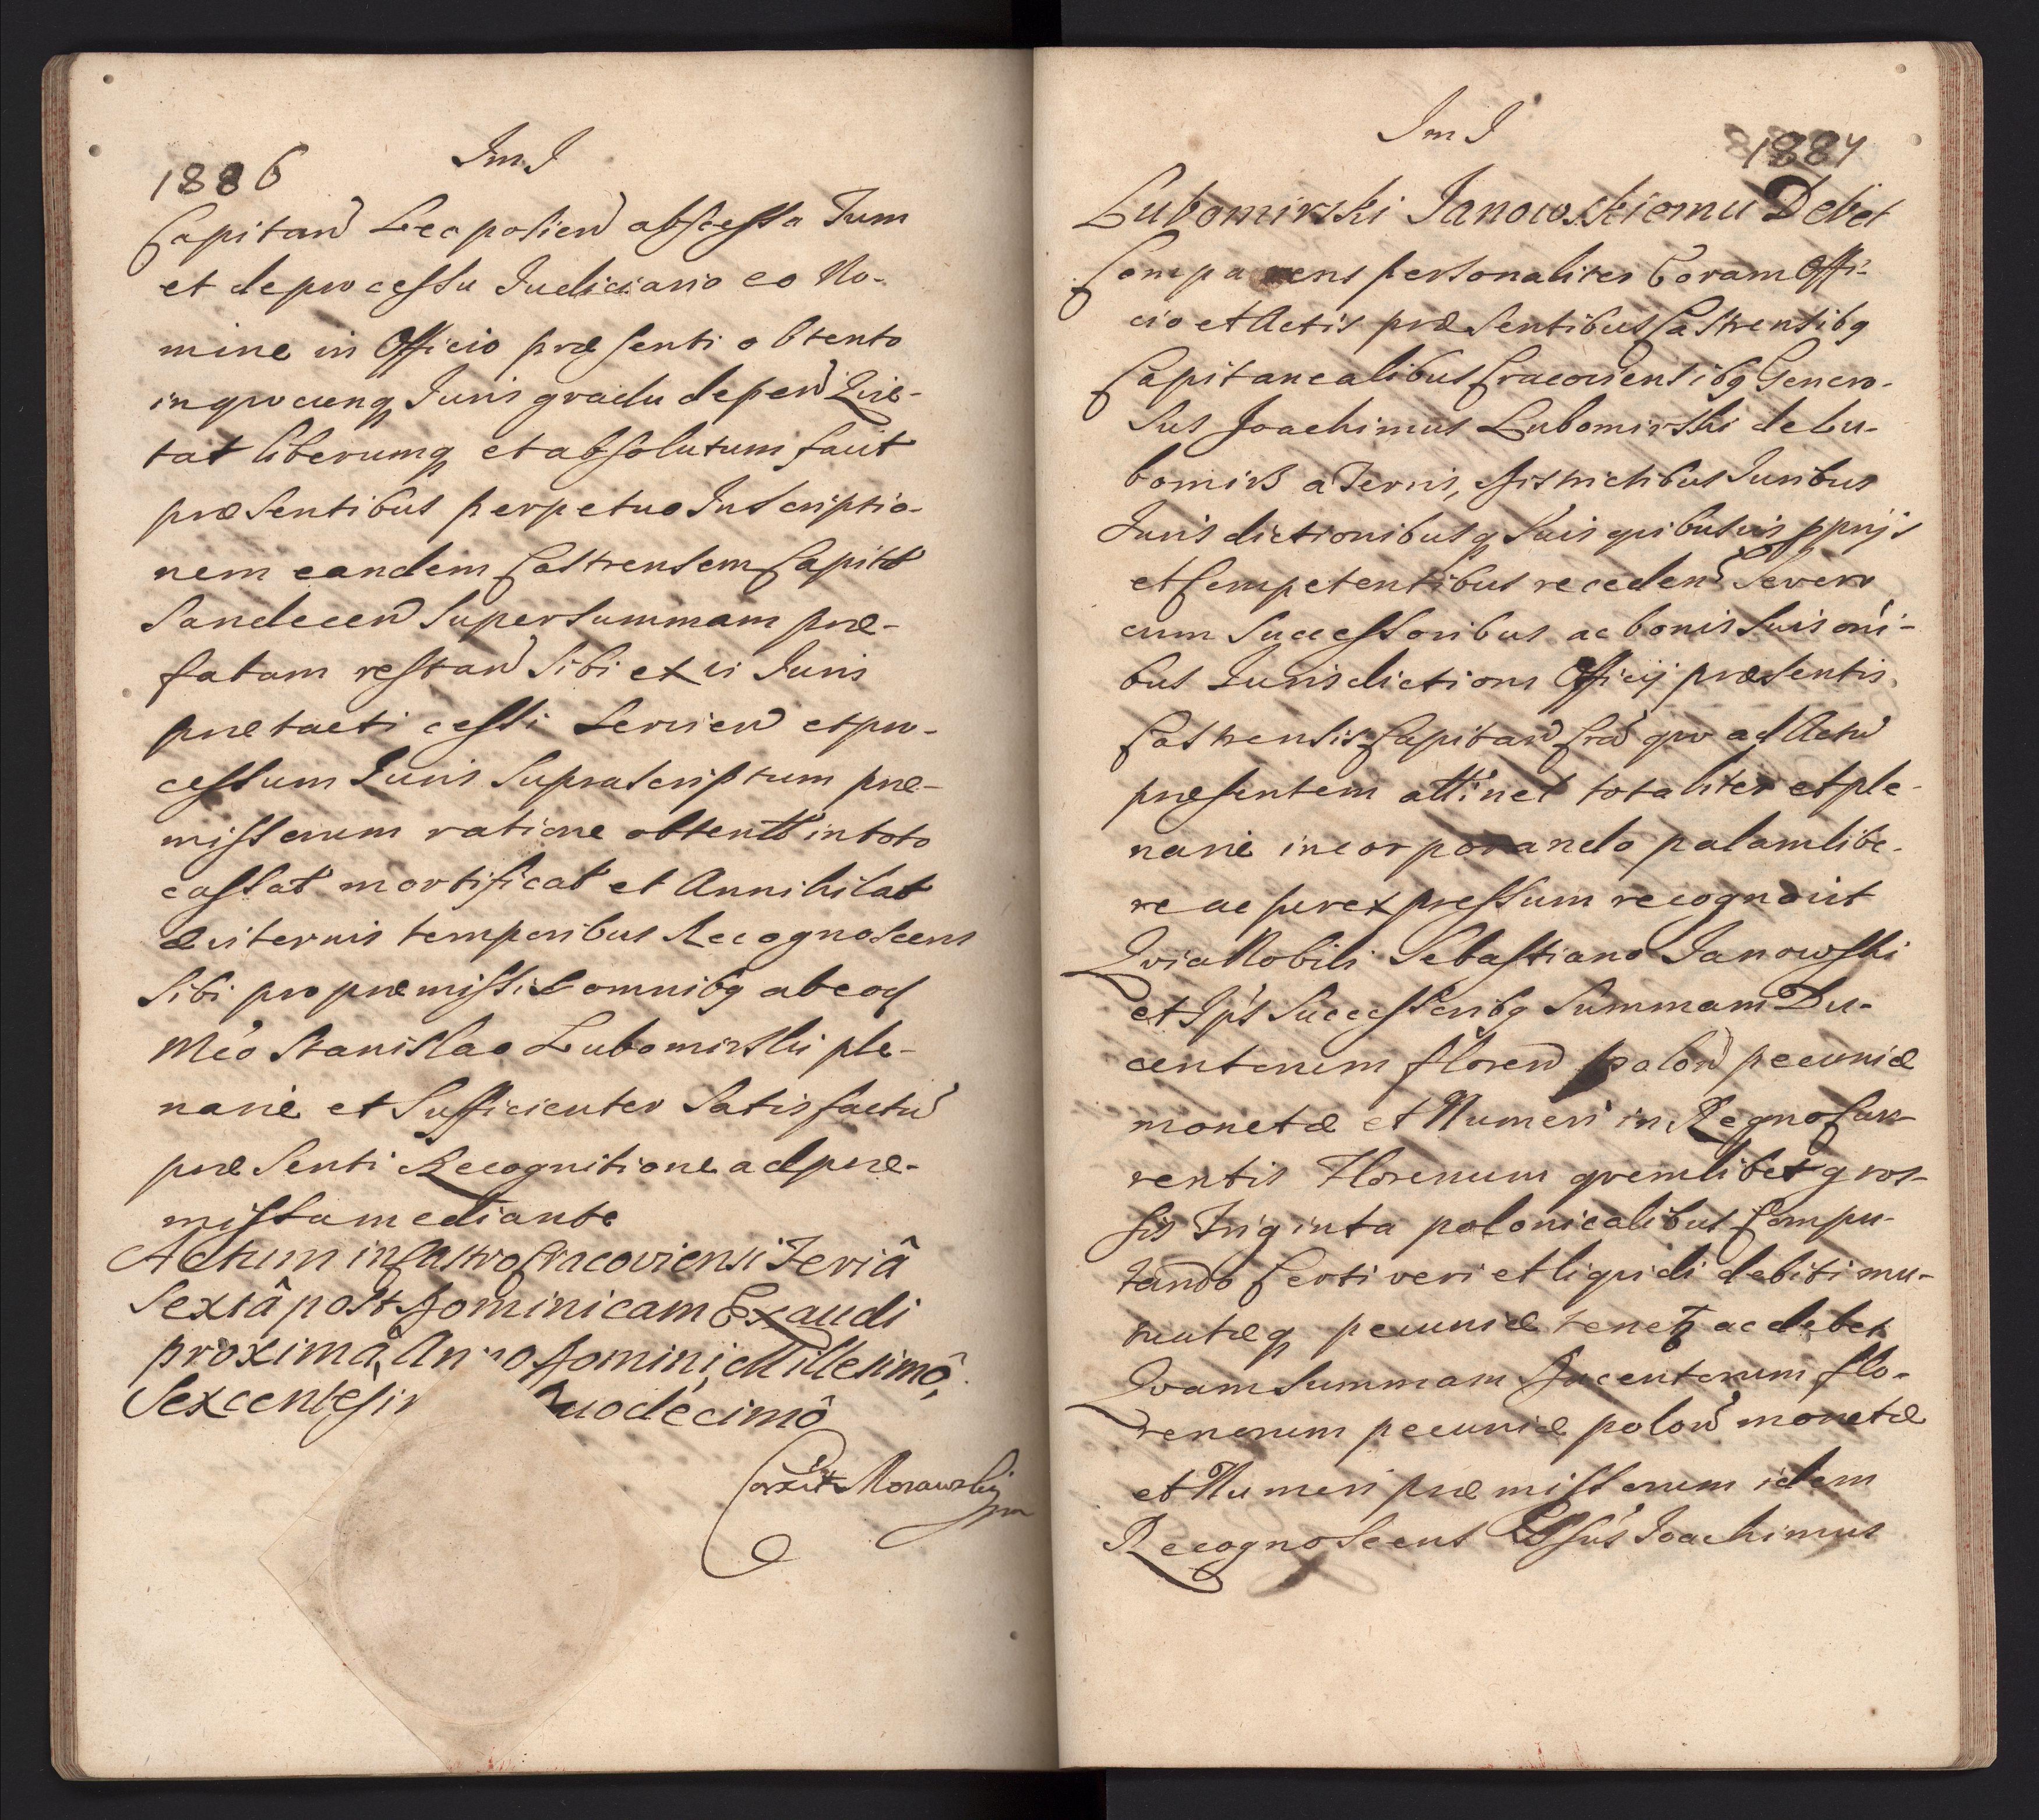 1886 ImI
Capitan̄ Leopolien̄ abscessa Tum
et de processu Judiciario eo No-
mine in Officio præsenti obtento
inqvocunq Juris gradu depen̄ Qvie-
tat liberumq et absolutum facit
præsentibus perpetuo Inscriptio-
nem eandem Castrensem Capitt
Sandecen̄ Super Summam præ-
fatam restan̄ Sibi ex vi Juris
prætacti cessi Servien̄ et pro-
cessum Juris Suprascriptum præ-
missorum ratione obtentū in toto
cassat mortificat et Annihilat
æviternis temporibus Recognoscens
Sibi pro præmissis omnibq ab eod
Mco Stanislao Lubomirski ple-
narie et Sufficienter Satisfactū
præsenti Recognitione ad præ-
missa mediante
Actum in Castro Cracoviensi Feriâ
Sextâ post Dominicam Exaudi
proximâ, Anno Domini, Millesimô,
Sexcentesi Duodecimô
Morawsky
mp
ImI 1887
Lubomirski Janowskiemu Debet
Comparens personaliter Coram Offi-
cio et Actis præsentibus Castrensibq
Capitanealibus Cracoviensibq Genero-
sus Joachimus Lubomirski de Lu-
bomirz a Terris, districtibus Juribus
Jurisdictionibusq Suis qvibusvis pprijs
et Competentibus receden̄ Severo
cum Successoribus ac bonis Suis oni-
bus Jurisdictioni Officij præsentis
Castrensis Capitan̄ Cra qvo ad Actū
præsentem attinet totaliter et ple-
narie incorporando palam libe-
re ac per expressum recognovit
Qvia Nobili Sebastiano Janowski
et Ips Successoribq Summam Du-
centorum floren̄ polon̄ pecuniæ
monetæ et Numeri in Regno Cur-
rentis Florenum qvemlibet gros-
sis Triginta polonicalibus Compu-
tando Certi veri et liqvidi debiti mu-
tuatæq pecuniæ tenetq ac debet
Qvam Summam Ducentorum flo-
renorum pecuniæ polon̄ monetæ
et Numeri præmissorum idem
Recognoscens Gssus Joachimus